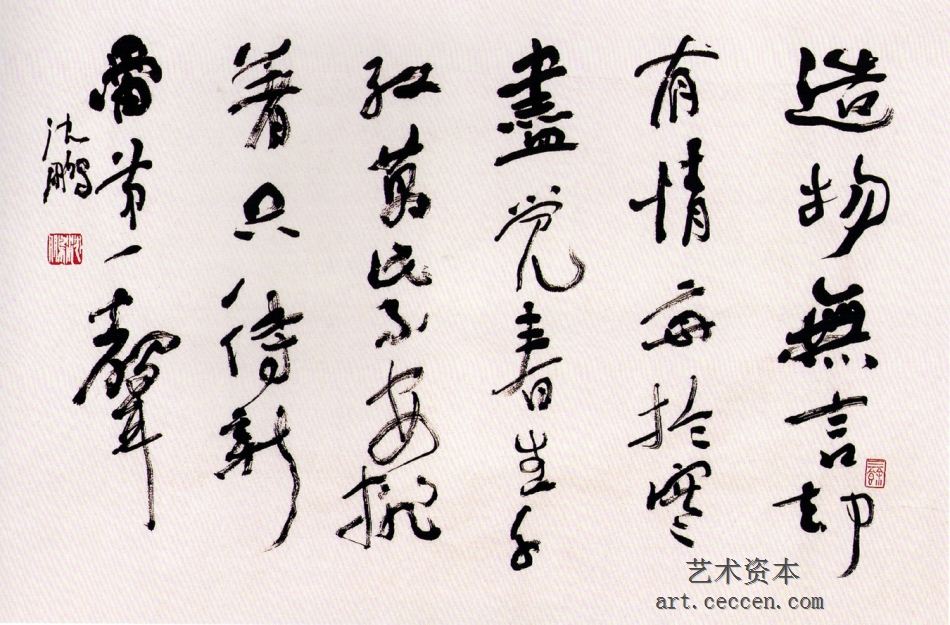 造物無言却
有情每於寒
盡觉春生千
红萬紫安排
著只待新
雷第一聲
沈鵬
艺术资本
art.ceccen.com